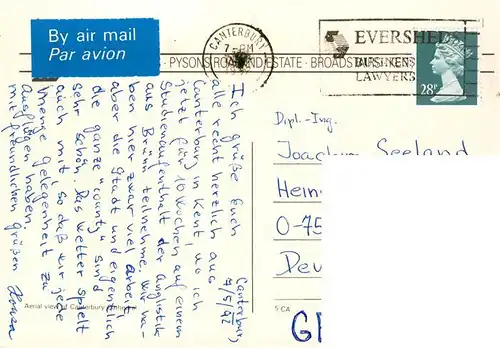 By air mail
Par avion
CANTERBURY
7-PM
EVERSHEDS
BUSINESS
LAWYERS
PYSONS ROAD IND ESTATE · BROADSTAIRS · KENT
28P
Canterbury,
7/5/92
Ich grüße Euch
alle recht herzlich aus
Canterbury in Kent, wo ich
jetzt für 10 Wochen auf einem
Studienaufenthalt der Anglistik
aus Brünn teilnehme. Wir ha-
ben hier zwar viel Arbeit,
aber die Stadt und eigentlich
die ganze "county" sind
sehr schön. Das Wetter spielt
auch mit so daß wir jede
Menge Gelegenheit zu
Ausflügen haben.
Mit freundlichen Grüßen
Dipl.-Ing.
Seeland
Hein
O-75
Deu
Aerial view of Canterbury Cathedral
5 CA